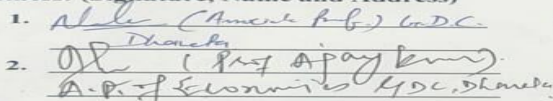 1. (Associate Prof.) G.D.C.
Dhaneta
2. (Prof Ajay Kumar).
A.P. of Economics GDC, Dhaneta